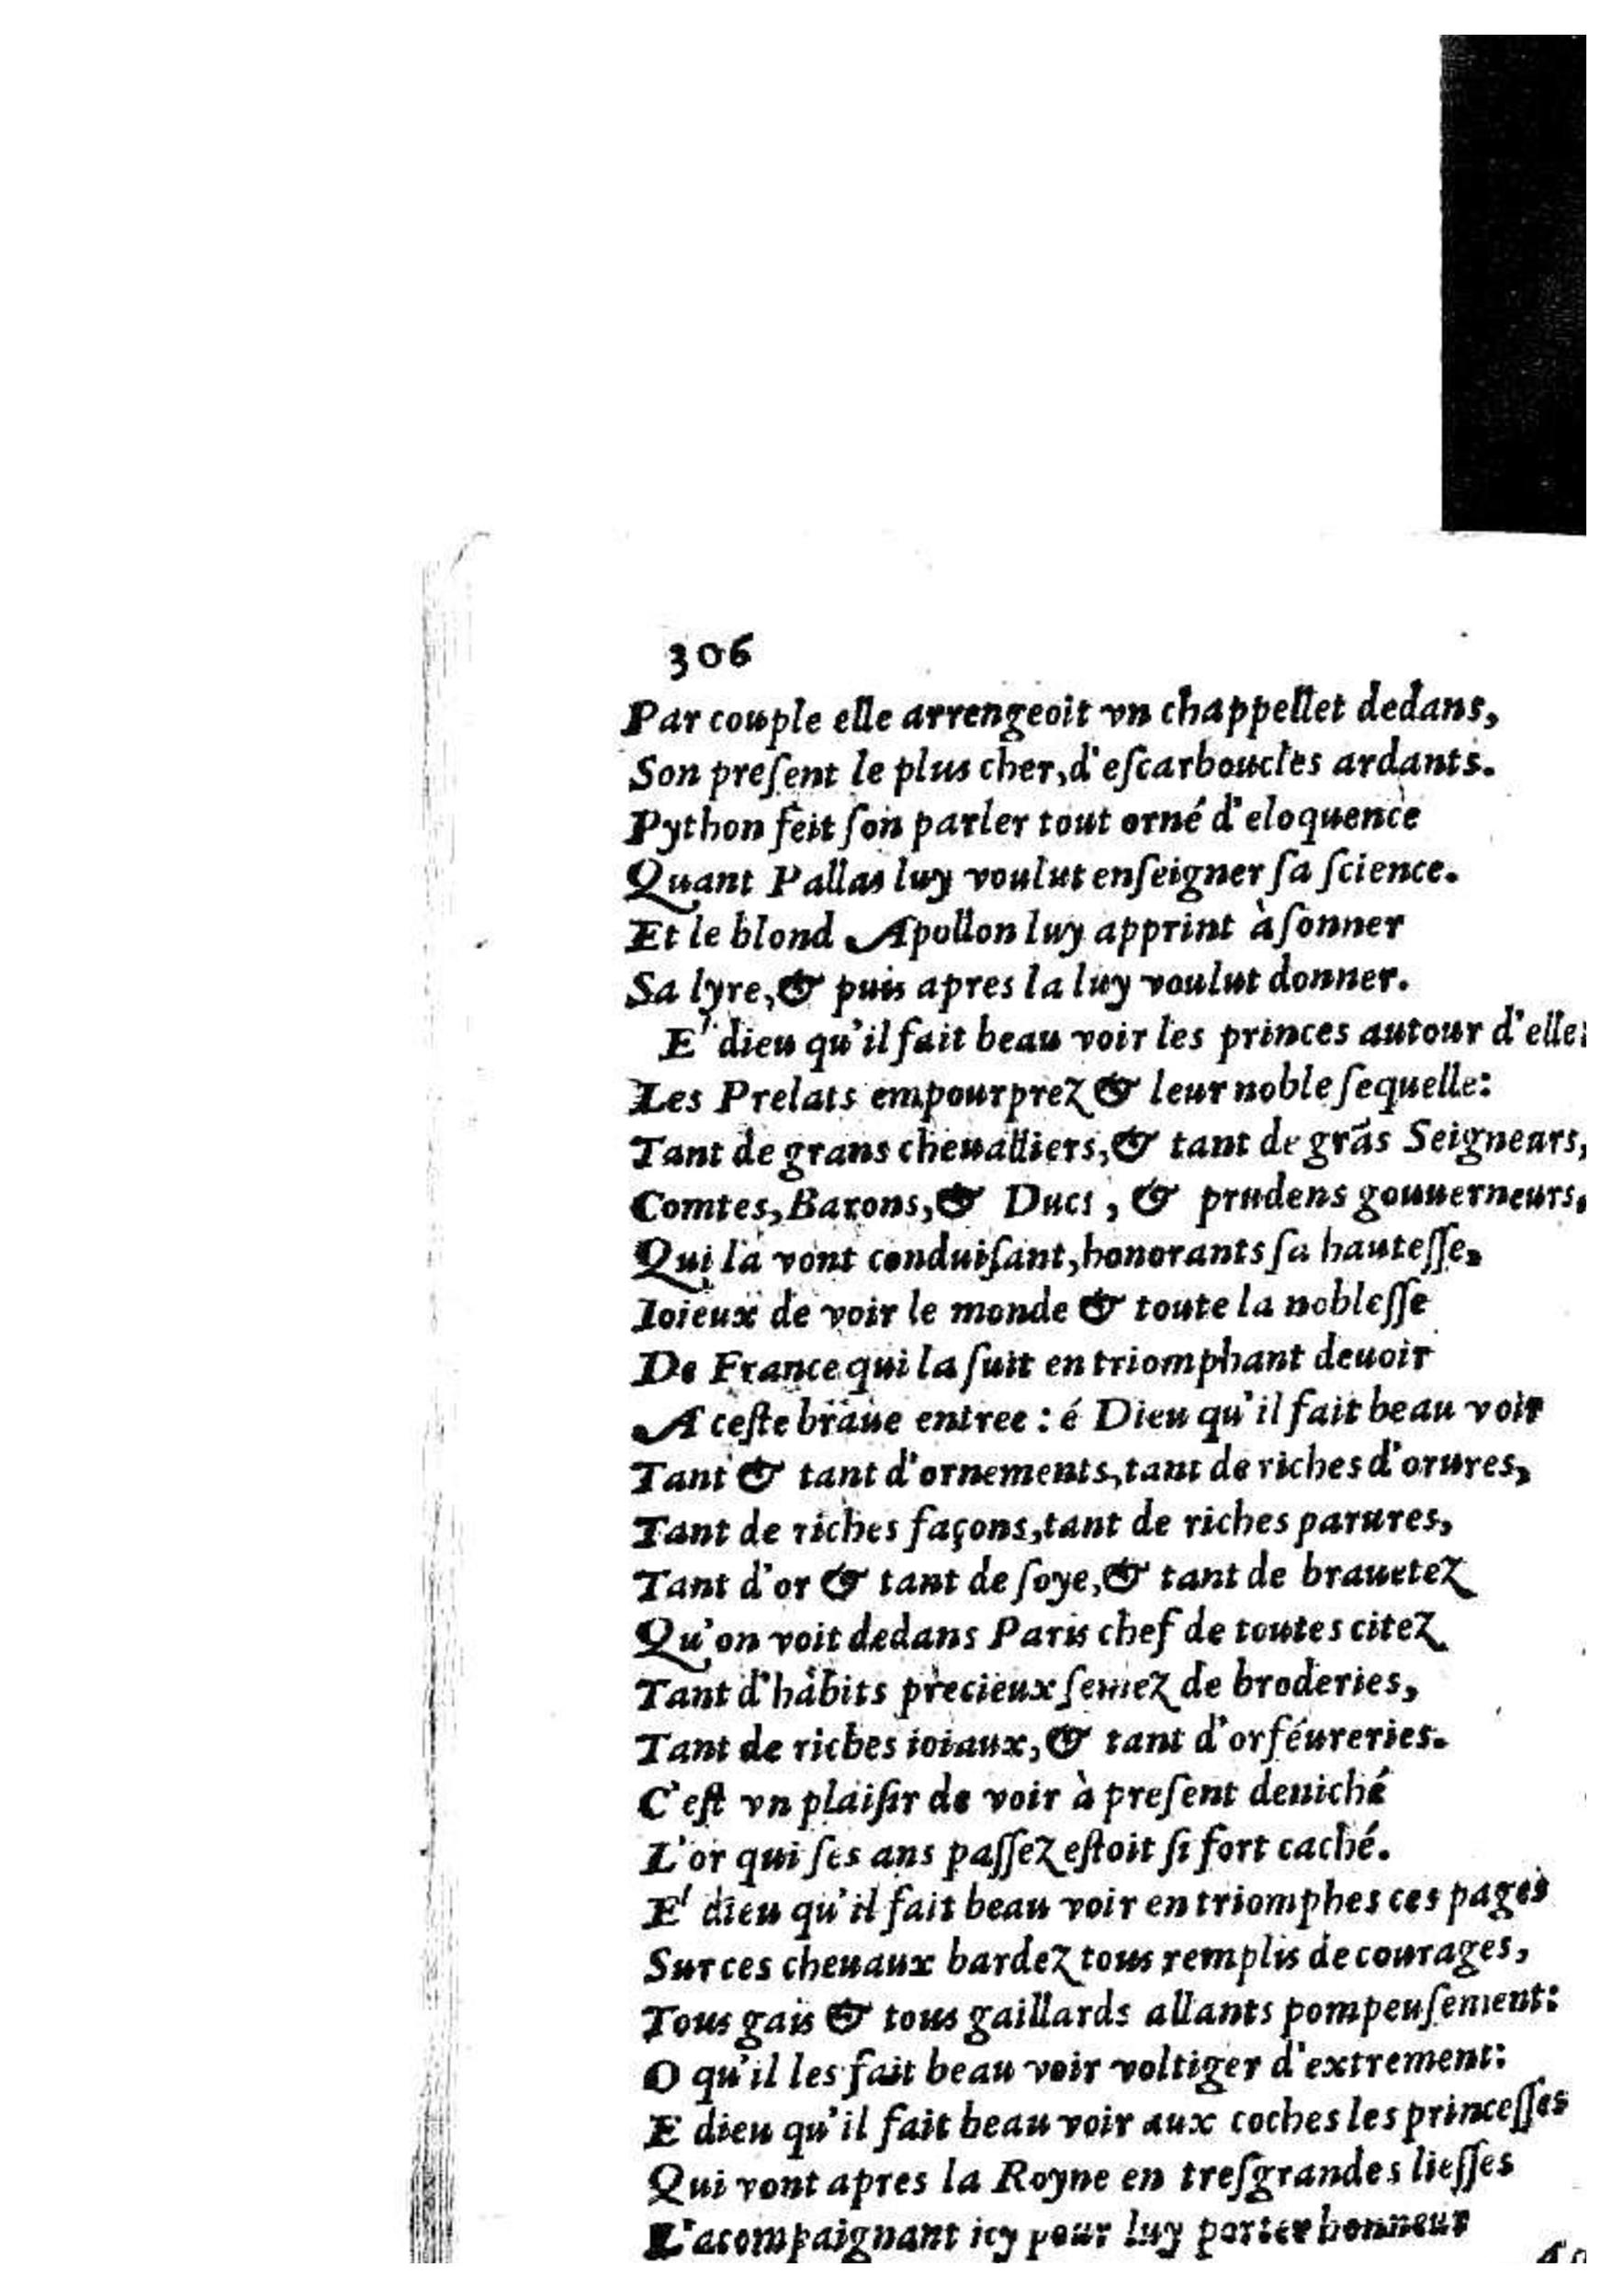 306
Par couple elle arrengeoit vn chappellet dedans,
Son preſent le plus cher, d'eſcarboucles ardants.
Python feit ſon parler tout orné d'eloquence
Quant Pallas luy voulut enſeigner ſa ſcience.
Et le blond Apollon luy apprint à ſonner
Sa lyre, & puis apres la luy voulut donner.
E' dieu qu'il fait beau voir les princes autour d'elle:
Les Prelats empourprez & leur noble ſequelle:
Tant de grans cheualliers, & tant de grãs Seigneurs,
Comtes, Barons, & Ducs, & prudens gouuerneurs,
Qui là vont conduiſant, honorants ſa hauteſſe,
Ioieux de voir le monde & toute la nobleſſe
De France qui la ſuit en triomphant deuoir
A ceſte braue entree: é Dieu qu'il fait beau voir
Tant & tant d'ornements, tant de riches d'orures,
Tant de riches façons, tant de riches parures,
Tant d'or & tant de ſoye, & tant de brauetez
Qu'on voit dedans Paris chef de toutes citez
Tant d'habits precieux ſemez de broderies,
Tant de riches ioiaux, & tant d'orféureries.
C'eſt vn plaiſir de voir à preſent deniché
L'or qui ſes ans paſſez eſtoit ſi fort caché.
E' dieu qu'il fait beau voir en triomphes ces pages
Sur ces cheuaux bardez tous remplis de courages,
Tous gais & tous gaillards allants pompeuſement:
O qu'il les fait beau voir voltiger d'extrement:
E dieu qu'il fait beau voir aux coches les princeſſes
Qui vont apres la Royne en treſgrandes lieſſes
L'acompaignant icy pour luy porter honneur